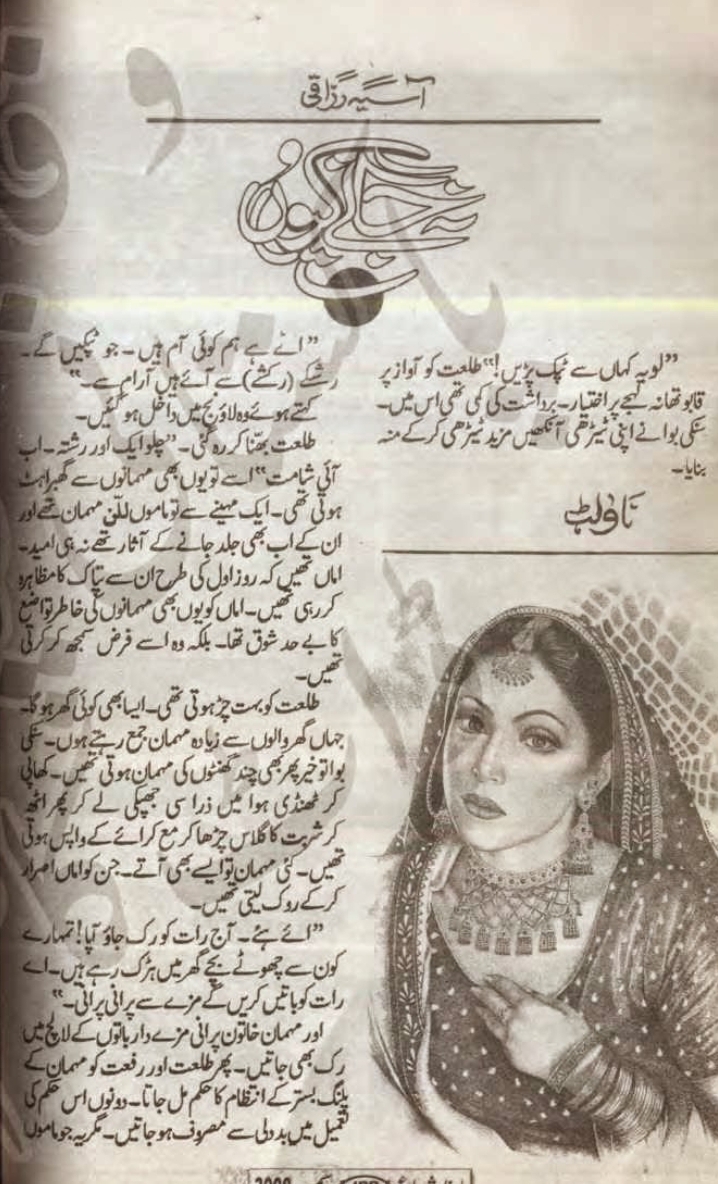 آسیہ رزاقی
”لو یہ کہاں سے ٹپک پڑیں!“ طلعت کو آواز پر
قابو تھا نہ لہجے پر اختیار۔ برداشت کی کمی تھی اس میں۔
سنکی بوا نے اپنی ٹیڑھی آنکھیں مزید ٹیڑھی کرکے منہ
بنایا۔
ناولٹ
”اے ہے ہم کوئی آم ہیں۔ جو ٹپکیں گے۔
رشکے (رکشے) سے آئے ہیں آرام سے۔“
کہتے ہوئے وہ لاؤنج میں داخل ہوگئیں۔
طلعت بھنا کر رہ گئی۔ ”چلو ایک اور رشتہ۔ اب
آئی شامت“ اسے تو یوں بھی مہمانوں سے گھبراہٹ
ہوتی تھی۔ ایک مہینے سے تو ماموں للن مہمان تھے اور
ان کے اب بھی جلد جانے کے آثار تھے نہ ہی امید۔
اماں تھیں کہ روز اول کی طرح ان سے تپاک کا مظاہرہ
کررہی تھیں۔ اماں کو یوں بھی مہمانوں کی خاطر تواضع
کا بے حد شوق تھا۔ بلکہ وہ اسے فرض سمجھ کر کرتی
تھیں۔
طلعت کو بہت چڑ ہوتی تھی۔ ایسا بھی کوئی گھر ہوگا۔
جہاں گھر والوں سے زیادہ مہمان جمع رہتے ہوں۔ سنکی
بوا تو خیر پھر بھی چند گھنٹوں کی مہمان ہوتی تھیں۔ کھا پی
کر ٹھنڈی ہوا میں ذرا سی جھپکی لے کر پھر اٹھ
کر شربت کا گلاس چڑھا کر مع کرائے کے واپس ہوتی
تھیں۔ کئی مہمان تو ایسے بھی آتے۔ جن کو اماں اصرار
کرکے روک لیتی تھیں۔
”ائے ہئے۔ آج رات کو رک جاؤ آپا! تمہارے
کون سے چھوٹے بچے گھر میں ہڑک رہے ہیں۔ اے
رات کو باتیں کریں گے مزے سے پرانی پرانی۔“
اور مہمان خاتون پرانی مزے دار باتوں کے لالچ میں
رک بھی جاتیں۔ پھر طلعت اور رفعت کو مہمان کے
پلنگ بستر کے انتظام کا حکم مل جاتا۔ دونوں اس حکم کی
تعمیل میں بددلی سے مصروف ہوجاتیں۔ مگر یہ جو ماموں